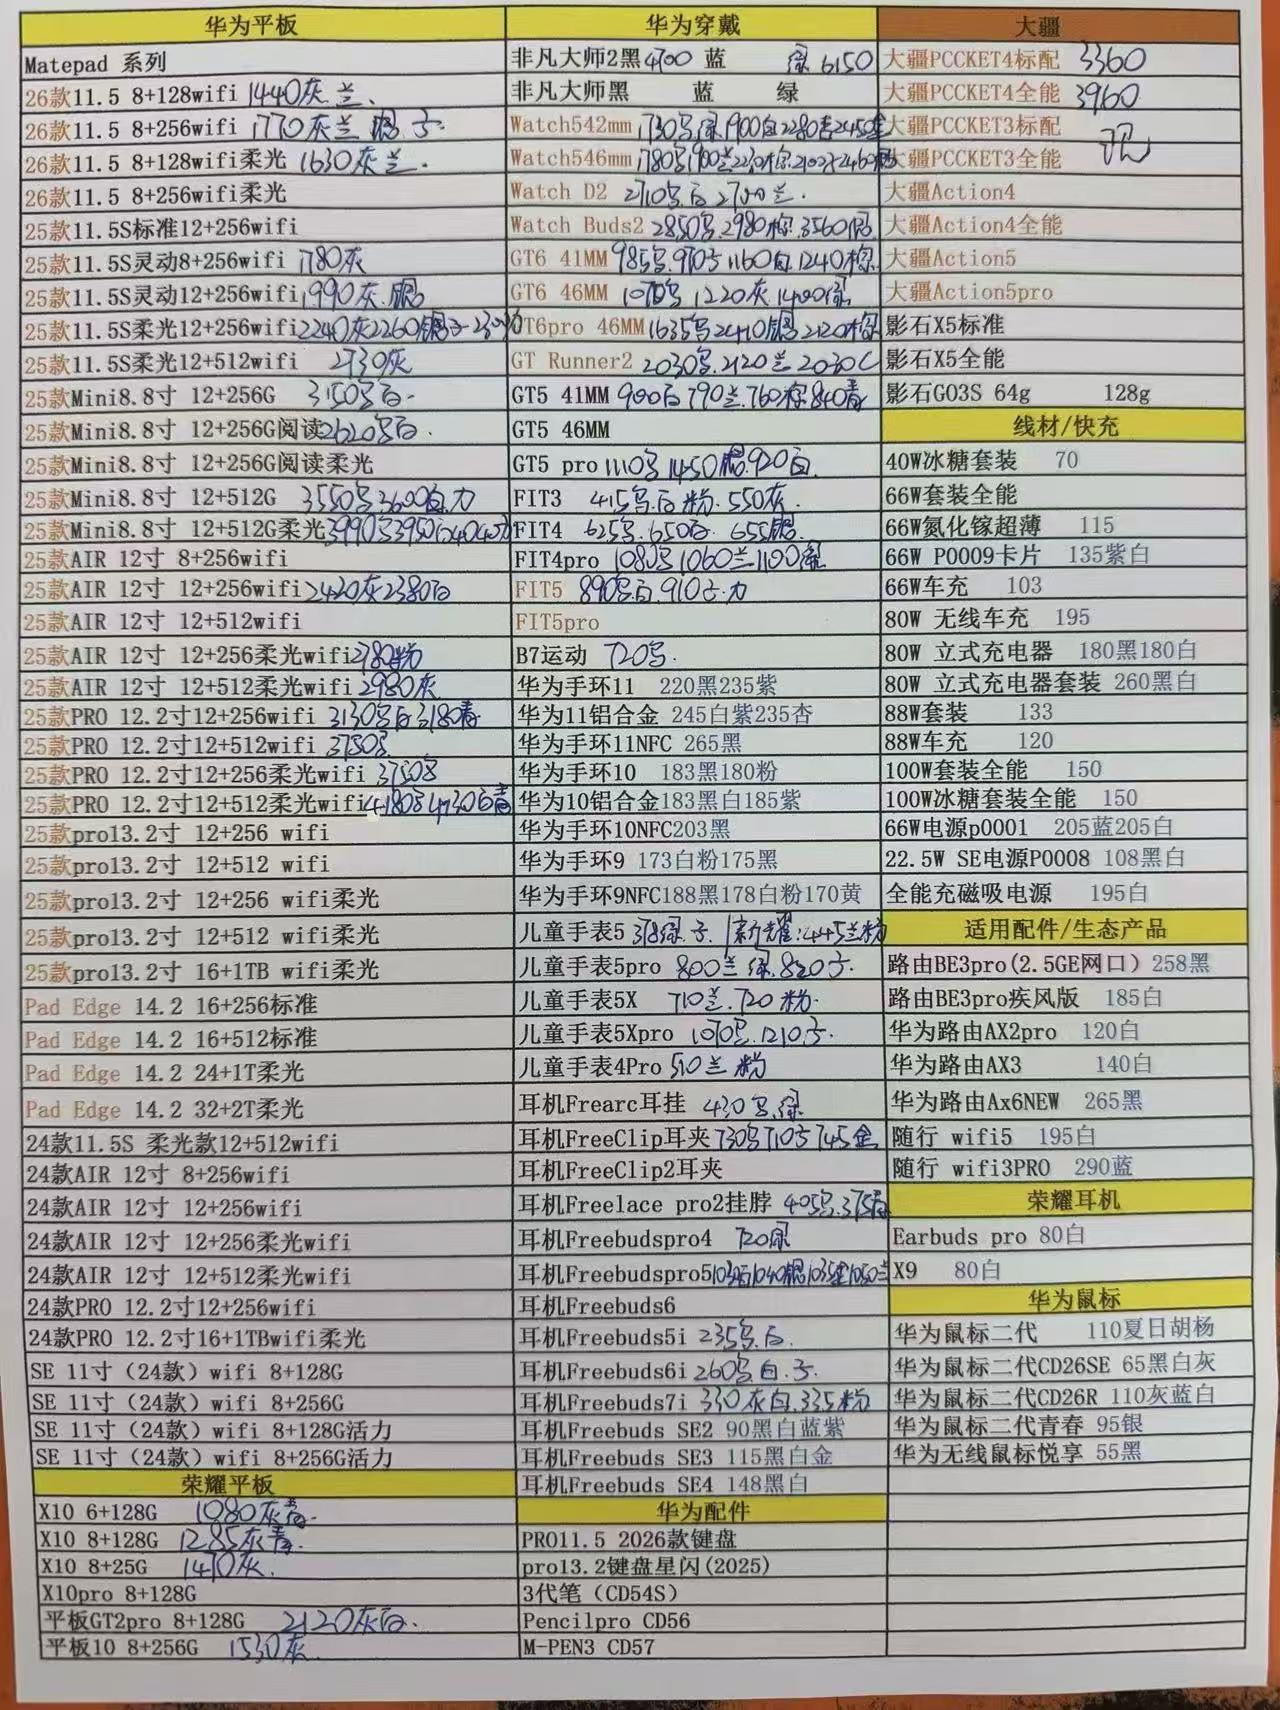 华为平板
Matepad 系列
26款11.5 8+128wifi 1440灰.兰.
26款11.5 8+256wifi 1770灰兰 银.子.
26款11.5 8+128wifi柔光 1630灰兰.
26款11.5 8+256wifi柔光
25款11.5S标准12+256wifi
25款11.5S灵动8+256wifi 1780灰
25款11.5S灵动12+256wifi 1990灰.银
25款11.5S柔光12+256wifi 2240灰2260银子
25款11.5S柔光12+512wifi 2730灰
25款Mini8.8寸 12+256G 3150白.
25款Mini8.8寸 12+256G阅读 2620白.
25款Mini8.8寸 12+256G阅读柔光
25款Mini8.8寸 12+512G 3550 3600白.力
25款Mini8.8寸 12+512G柔光 3990 3950
25款AIR 12寸 8+256wifi
25款AIR 12寸 12+256wifi 2420灰2380白
25款AIR 12寸 12+512wifi
25款AIR 12寸 12+256柔光wifi 2780粉
25款AIR 12寸 12+512柔光wifi 2980灰
25款PRO 12.2寸12+256wifi 3130白 3180青
25款PRO 12.2寸12+512wifi 3750
25款PRO 12.2寸12+256柔光wifi 3750
25款PRO 12.2寸12+512柔光wifi 4180 4230白青
25款pro13.2寸 12+256 wifi
25款pro13.2寸 12+512 wifi
25款pro13.2寸 12+256 wifi柔光
25款pro13.2寸 12+512 wifi柔光
25款pro13.2寸 16+1TB wifi柔光
Pad Edge 14.2 16+256标准
Pad Edge 14.2 16+512标准
Pad Edge 14.2 24+1T柔光
Pad Edge 14.2 32+2T柔光
24款11.5S 柔光款12+512wifi
24款AIR 12寸 8+256wifi
24款AIR 12寸 12+256wifi
24款AIR 12寸 12+256柔光wifi
24款AIR 12寸 12+512柔光wifi
24款PRO 12.2寸12+256wifi
24款PRO 12.2寸16+1TBwifi柔光
SE 11寸（24款）wifi 8+128G
SE 11寸（24款）wifi 8+256G
SE 11寸（24款）wifi 8+128G活力
SE 11寸（24款）wifi 8+256G活力
荣耀平板
X10 6+128G 1080灰青.
X10 8+128G 1285灰青.
X10 8+25G 1410灰.
X10pro 8+128G
平板GT2pro 8+128G 2120灰白.
平板10 8+256G 1530灰.
华为穿戴
非凡大师2黑4700 蓝 绿6150
非凡大师黑 蓝 绿
Watch542mm 1730 绿1900白2280青2450金
Watch546mm 1780 1900兰2230棕
Watch D2 2710.白2700兰.
Watch Buds2 2850.2980棕.3560银
GT6 41MM 985.970子1160白.1240棕
GT6 46MM 1070 1220灰1400绿
GT6pro 46MM 1635 2410银2120棕
GT Runner2 2030.2120兰2030C
GT5 41MM 900白790兰.760棕840青
GT5 46MM
GT5 pro 1110 1450银920白.
FIT3 415.白粉.550灰.
FIT4 625.650白 655银.
FIT4pro 1080 1060兰1100绿
FIT5 890白.910子.力
FIT5pro
B7运动 720.
华为手环11 220黑235紫
华为11铝合金 245白紫235杏
华为手环11NFC 265黑
华为手环10 183黑180粉
华为10铝合金183黑白185紫
华为手环10NFC203黑
华为手环9 173白粉175黑
华为手环9NFC188黑178白粉170黄
儿童手表5 318绿.子.新耀:445兰粉
儿童手表5pro 800兰 绿.820子.
儿童手表5X 710兰.720粉.
儿童手表5Xpro 1070.1210子.
儿童手表4Pro 510兰 粉
耳机Frearc耳挂 430.绿
耳机FreeClip耳夹 730 710子745金
耳机FreeClip2耳夹
耳机Freelace pro2挂脖 405.375青
耳机Freebudspro4 720绿
耳机Freebudspro5
耳机Freebuds6
耳机Freebuds5i 235.白.
耳机Freebuds6i 260白.子.
耳机Freebuds7i 330灰白.335粉
耳机Freebuds SE2 90黑白蓝紫
耳机Freebuds SE3 115黑白金
耳机Freebuds SE4 148黑白
华为配件
PRO11.5 2026款键盘
pro13.2键盘星闪(2025)
3代笔（CD54S）
Pencilpro CD56
M-PEN3 CD57
大疆
大疆PCCKET4标配 3360
大疆PCCKET4全能 3960
大疆PCCKET3标配
大疆PCCKET3全能
大疆Action4
大疆Action4全能
大疆Action5
大疆Action5pro
影石X5标准
影石X5全能
影石GO3S 64g 128g
线材/快充
40W冰糖套装 70
66W套装全能
66W氮化镓超薄 115
66W P0009卡片 135紫白
66W车充 103
80W 无线车充 195
80W 立式充电器 180黑180白
80W 立式充电器套装 260黑白
88W套装 133
88W车充 120
100W套装全能 150
100W冰糖套装全能 150
66W电源p0001 205蓝205白
22.5W SE电源P0008 108黑白
全能充磁吸电源 195白
适用配件/生态产品
路由BE3pro(2.5GE网口）258黑
路由BE3pro疾风版 185白
华为路由AX2pro 120白
华为路由AX3 140白
华为路由Ax6NEW 265黑
随行 wifi5 195白
随行 wifi3PRO 290蓝
荣耀耳机
Earbuds pro 80白
X9 80白
华为鼠标
华为鼠标二代 110夏日胡杨
华为鼠标二代CD26SE 65黑白灰
华为鼠标二代CD26R 110灰蓝白
华为鼠标二代青春 95银
华为无线鼠标悦享 55黑